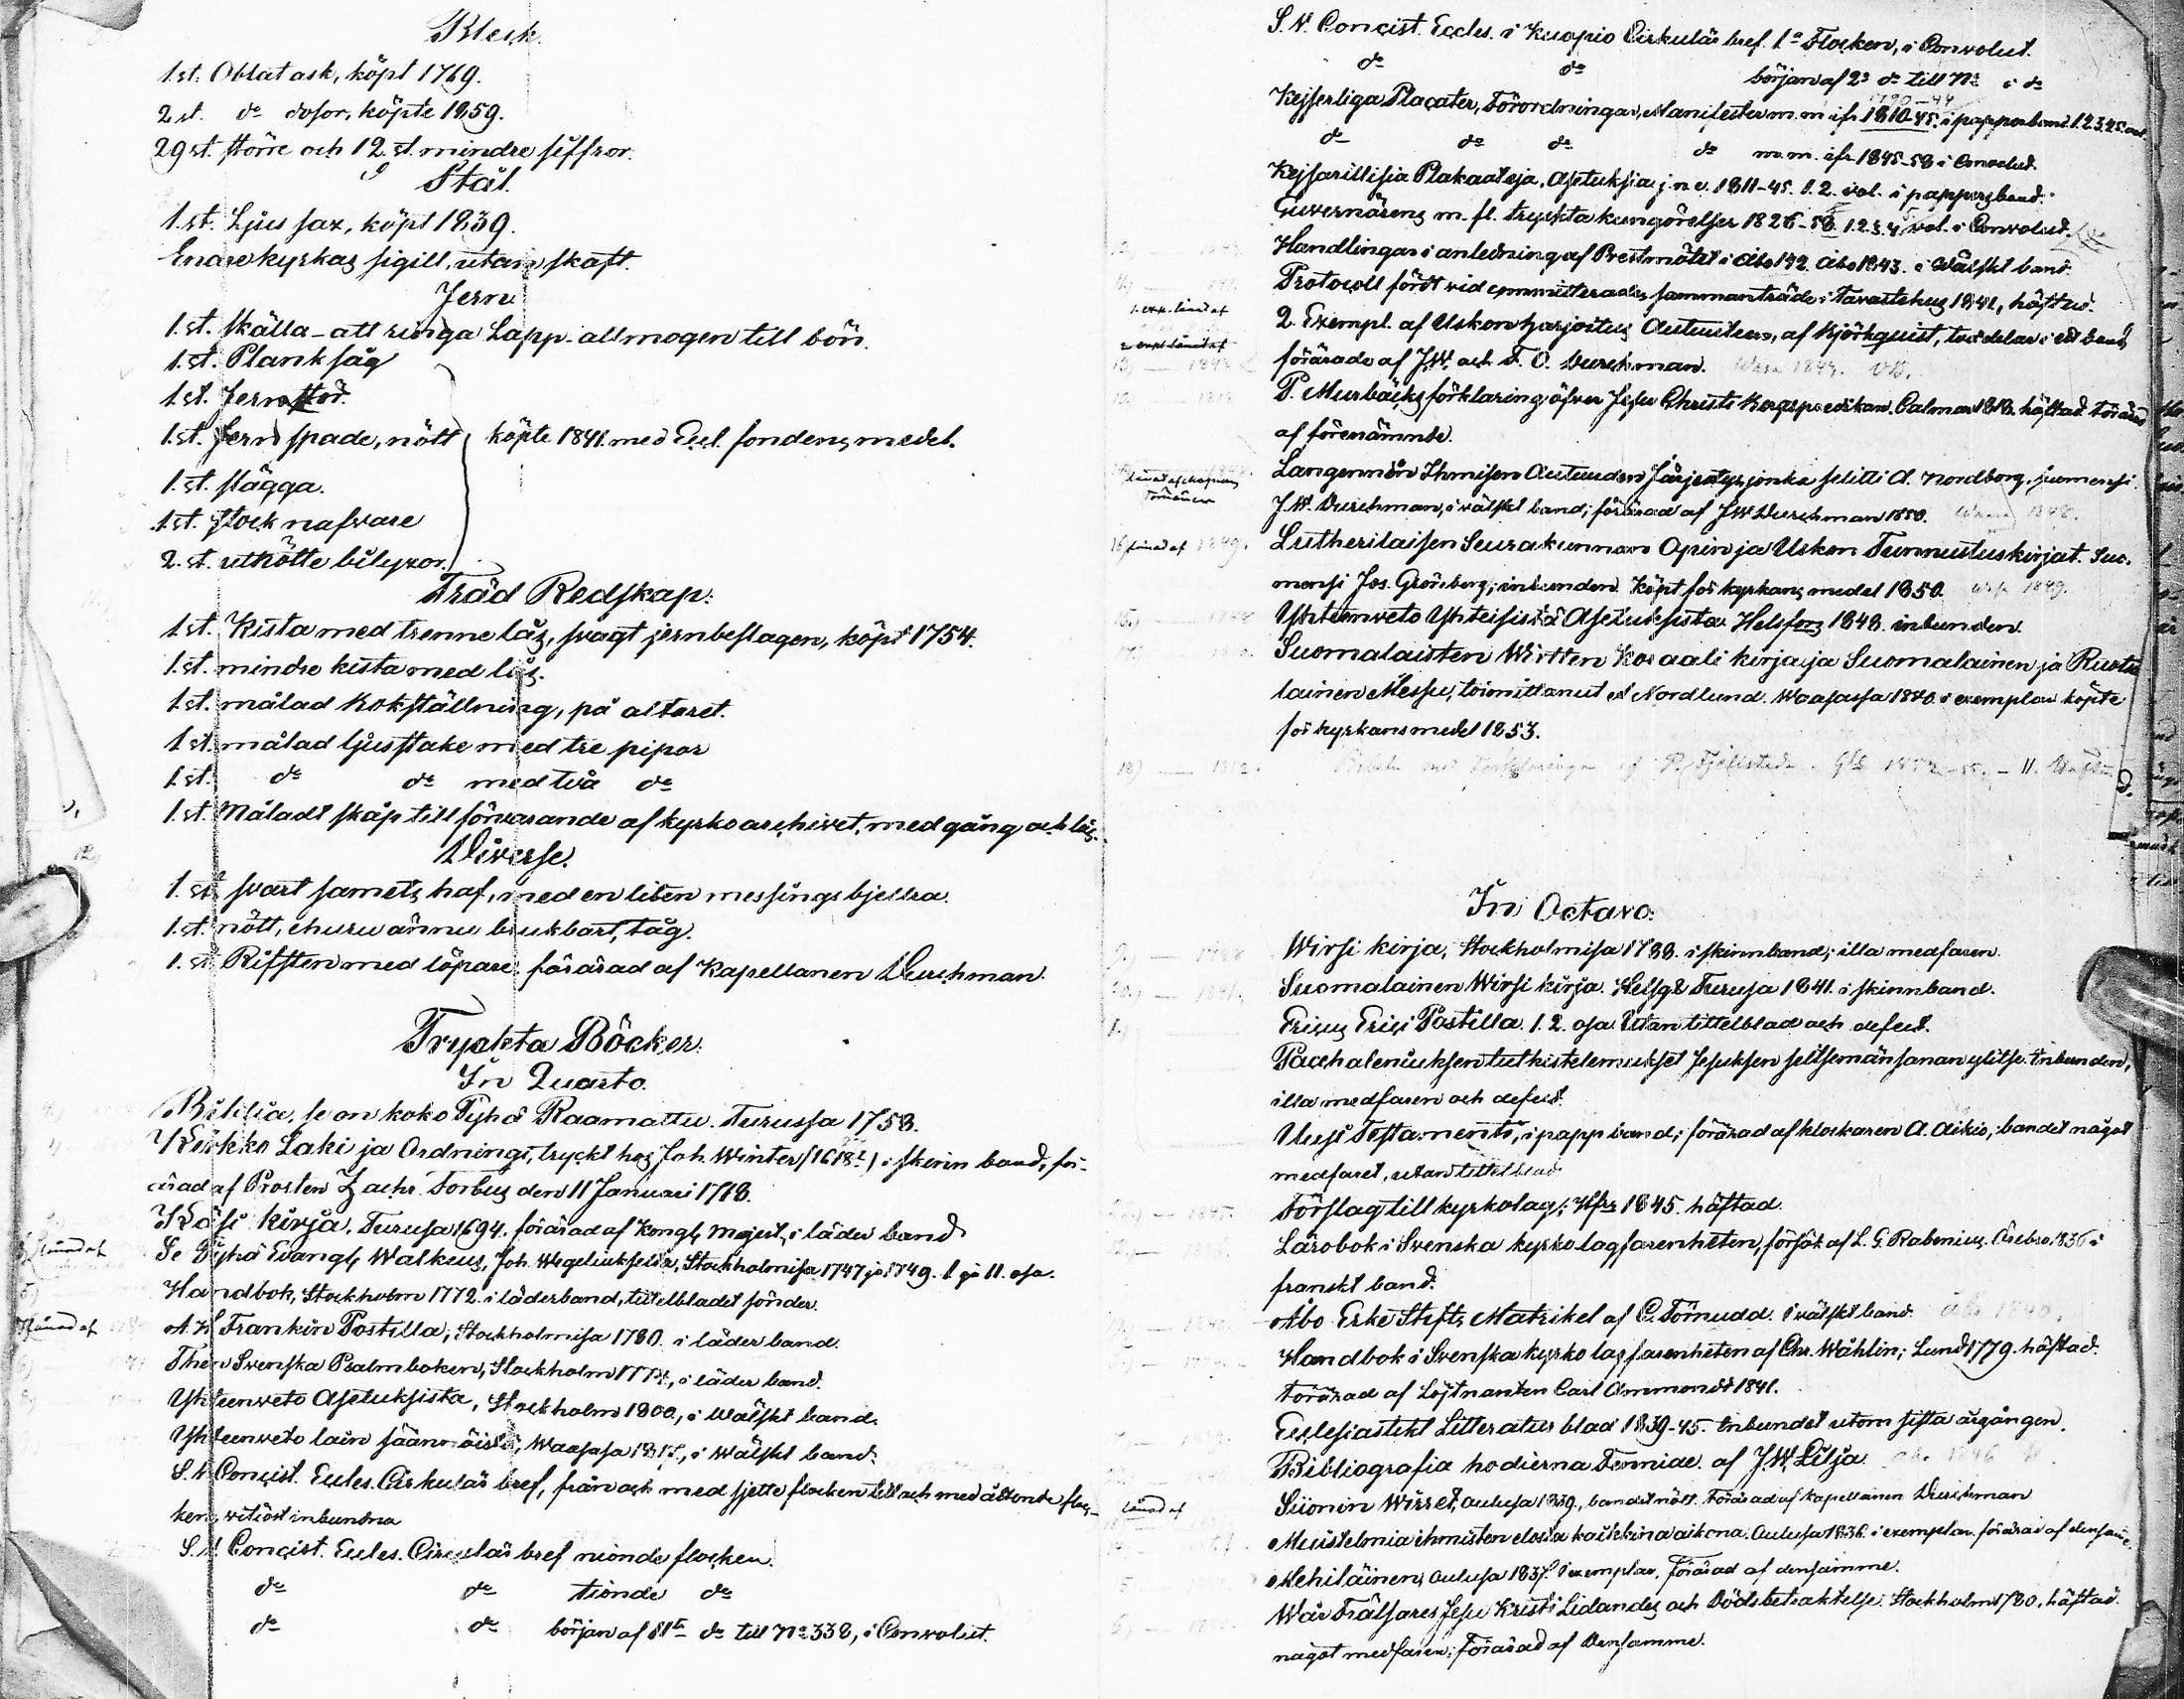 Bleck.
1 st. Oblat ask, köpt 1769.
2 st. do dosor, köpte 1859.
29 st. större och 12 st. mindre siffror.
Stål.
1 st. Ljus sax, köpt 1839.
Enare kyrkas sigill, utan skaft.
Jern
1 st. skälla att ringa Lapp-allmogen till bön.
1 st. Plank såg
1 st. Jern stör.
1 st. Jern spade, nött köpte 1841 med Eccl. fondens medel.
1 st. slägga.
1 st. stock nafvare
2 st. uthötte bilyxor.
Träd Redskap:
1 st. Kista med trenne lås, svagt jernbeslagen, köpt 1754.
1 st. mindre kista med lås.
1 st. målad Bokställning, på altaret.
1 st. målad ljusstake med tre pipor
1 st. do do med två do
1 st. Måladt skåp till förvarande af kyrkoarchivet, med gång och lås.
Diverse.
1 st. svart samets haf, med en liten messings bjellra.
1 st. nött, ehuru ännu brukbart, tåg.
1 st. Rifsten med löpare; förärad af Kapellanen Durchman.
Tryckta Böcker.
In Quarto.
Biblia, se on koko Pyhä Raamattu. Turussa 1758.
Kirkko Laki ja Ordningi, tryckt hos Joh. Winter i skinn band, för-
ärad af Prosten Zachr. Forbus den 11 Januari 1718.
Käsi kirja, Turusa 1694. förärad af Kongl. Majest, i läder band
Se Pyhä Evangl. Walkeus, Joh. Wegeliukselda, Stockholmisa 1747 ja 1749. I ja II. osa.
Handbok, Stockholm 1772. i läderband, titelbladet sönder.
A. H. Frankin Postilla; Stockholmisa 1780. i läder band.
Then Svenska Psalmboken, Stockholm, i läder band.
Yhteenveto Asetuksista, Stockholm 1800, i Wälskt band.
Yhteenveto lain säännöistä, Waasasa 1817, i Wälskt band.
S. V. Concist. Eccles. Cirkulär bref, från och med sjette flocken till och med åttonde floc-
ken, inbundna
S. V. Concist. Eccles. Circulär bref nionde flocken.
do do tionde do
do do början af 11te do till No 338, i Convolut.
S. V. Concist. Eccles. i Kuopio Cirkulär bref. 1a Flocken, i Convolut.
do do början af 2a do till No i do
Kejserliga Placater, Förordningar, Manifester m.m. ifr. 1810-45. i papperband 1.2.3.4.5. vol.
do do do do m.m. ifr. 1845-58 i Convolut.
Kejsarillisia Plakaateja, Asetuksia j.n.e. 1811-45. 1.2. vol. i pappersband.
Guvernörens m. fl. tryckta kungörelser 1826-58. 1.2.3.4. vol. i Convolut.
Handlingar i anledning af Prestmötet i Åbo 1843. i Wälskt band.
Protocoll fördt vid committerades sammanträde i Tavastehus 1841, häftad.
2. Exempl. af Uskon harjoitus Autuuteen, af Björkquist, två delar i ett band,
förärade af J.W. och F. O. Durchman.
P. Murbäcks förklaring öfver Jesu Christi Bergspredikan. Calmar 1818. häftad. förärad
af förenämnde.
Langennen Ihmisen Autuuden Järjestys, jonka selitti A. Nordborg, suomensi
J. W. Durchman, i välskt band; förärad af J W Durchman 1850.
Lutherilaisen Seurakunnan Opin ja Uskon Tunnustuskirjat. Suo-
mensi Jos. Grönberg; inbunden. Köpt för kyrkans medel 1850.
Yhteenveto Yhteisistä Asetuksista. Helsfors 1848. inbunden.
Suomalaisten Wirtten Koraali kirja ja Suomalainen ja Ruotsa-
lainen Messu, toimittanut Nordlund. Waasassa 1840. i exemplar köpte
för kyrkans medel 1853.
In Octavo:
Wirsi kirja, Stockholmisa 1788. i skinnband; illa medfaren.
Suomalainen Wirsi kirja. Turusa 1841. i skinnband.
Ericus Erici Postilla. 1. 2. osa. Utan tittelblad och defect.
tutkistelemukset Jesuksen seitsemän sanan ylitse. inbunden,
illa medfaren och defect.
Uusi Testamenti, i papp band; förärad af klockaren A. Aikio, bandet något
medfaret, utan tittelblad
Förslag till kyrkolag; Hfrs 1845. häftad.
Lärobok i Svenska kyrko lagfarenheten, försök af L. G. Rabenius. Örebro 1836 i
franskt band.
Åbo Erke Stifts Matrikel af C. Törnudd. i välskt band.
Handbok i Svenska kyrko lagfarenheten af Chr. Wåhlin; Lund 1779. häftad.
Förärad af Löjtnanten Carl Ammondt 1841.
Ecclesiastikt Litteratur blad 1839-45. inbundet utom sista årgången.
Bibliografia hodierna Fenniae. af J. W. Lilja.
Siionin Wirret, Oulusa, bandet nött. förärad af Kapellanen Durchman
Muistelmia ihmisten elosta kaikkina aikona. Oulusa 1836. i exemplar. förärad af densamme.
Mehiläinen, Oulusa 1837. i exemplar. Förärad af densamme.
Wår Frälsares Jesu Kristi Lidandes och Dödsbetraktelse. Stockholm 1780, häftad
något medfaren; förärad af Densamme.